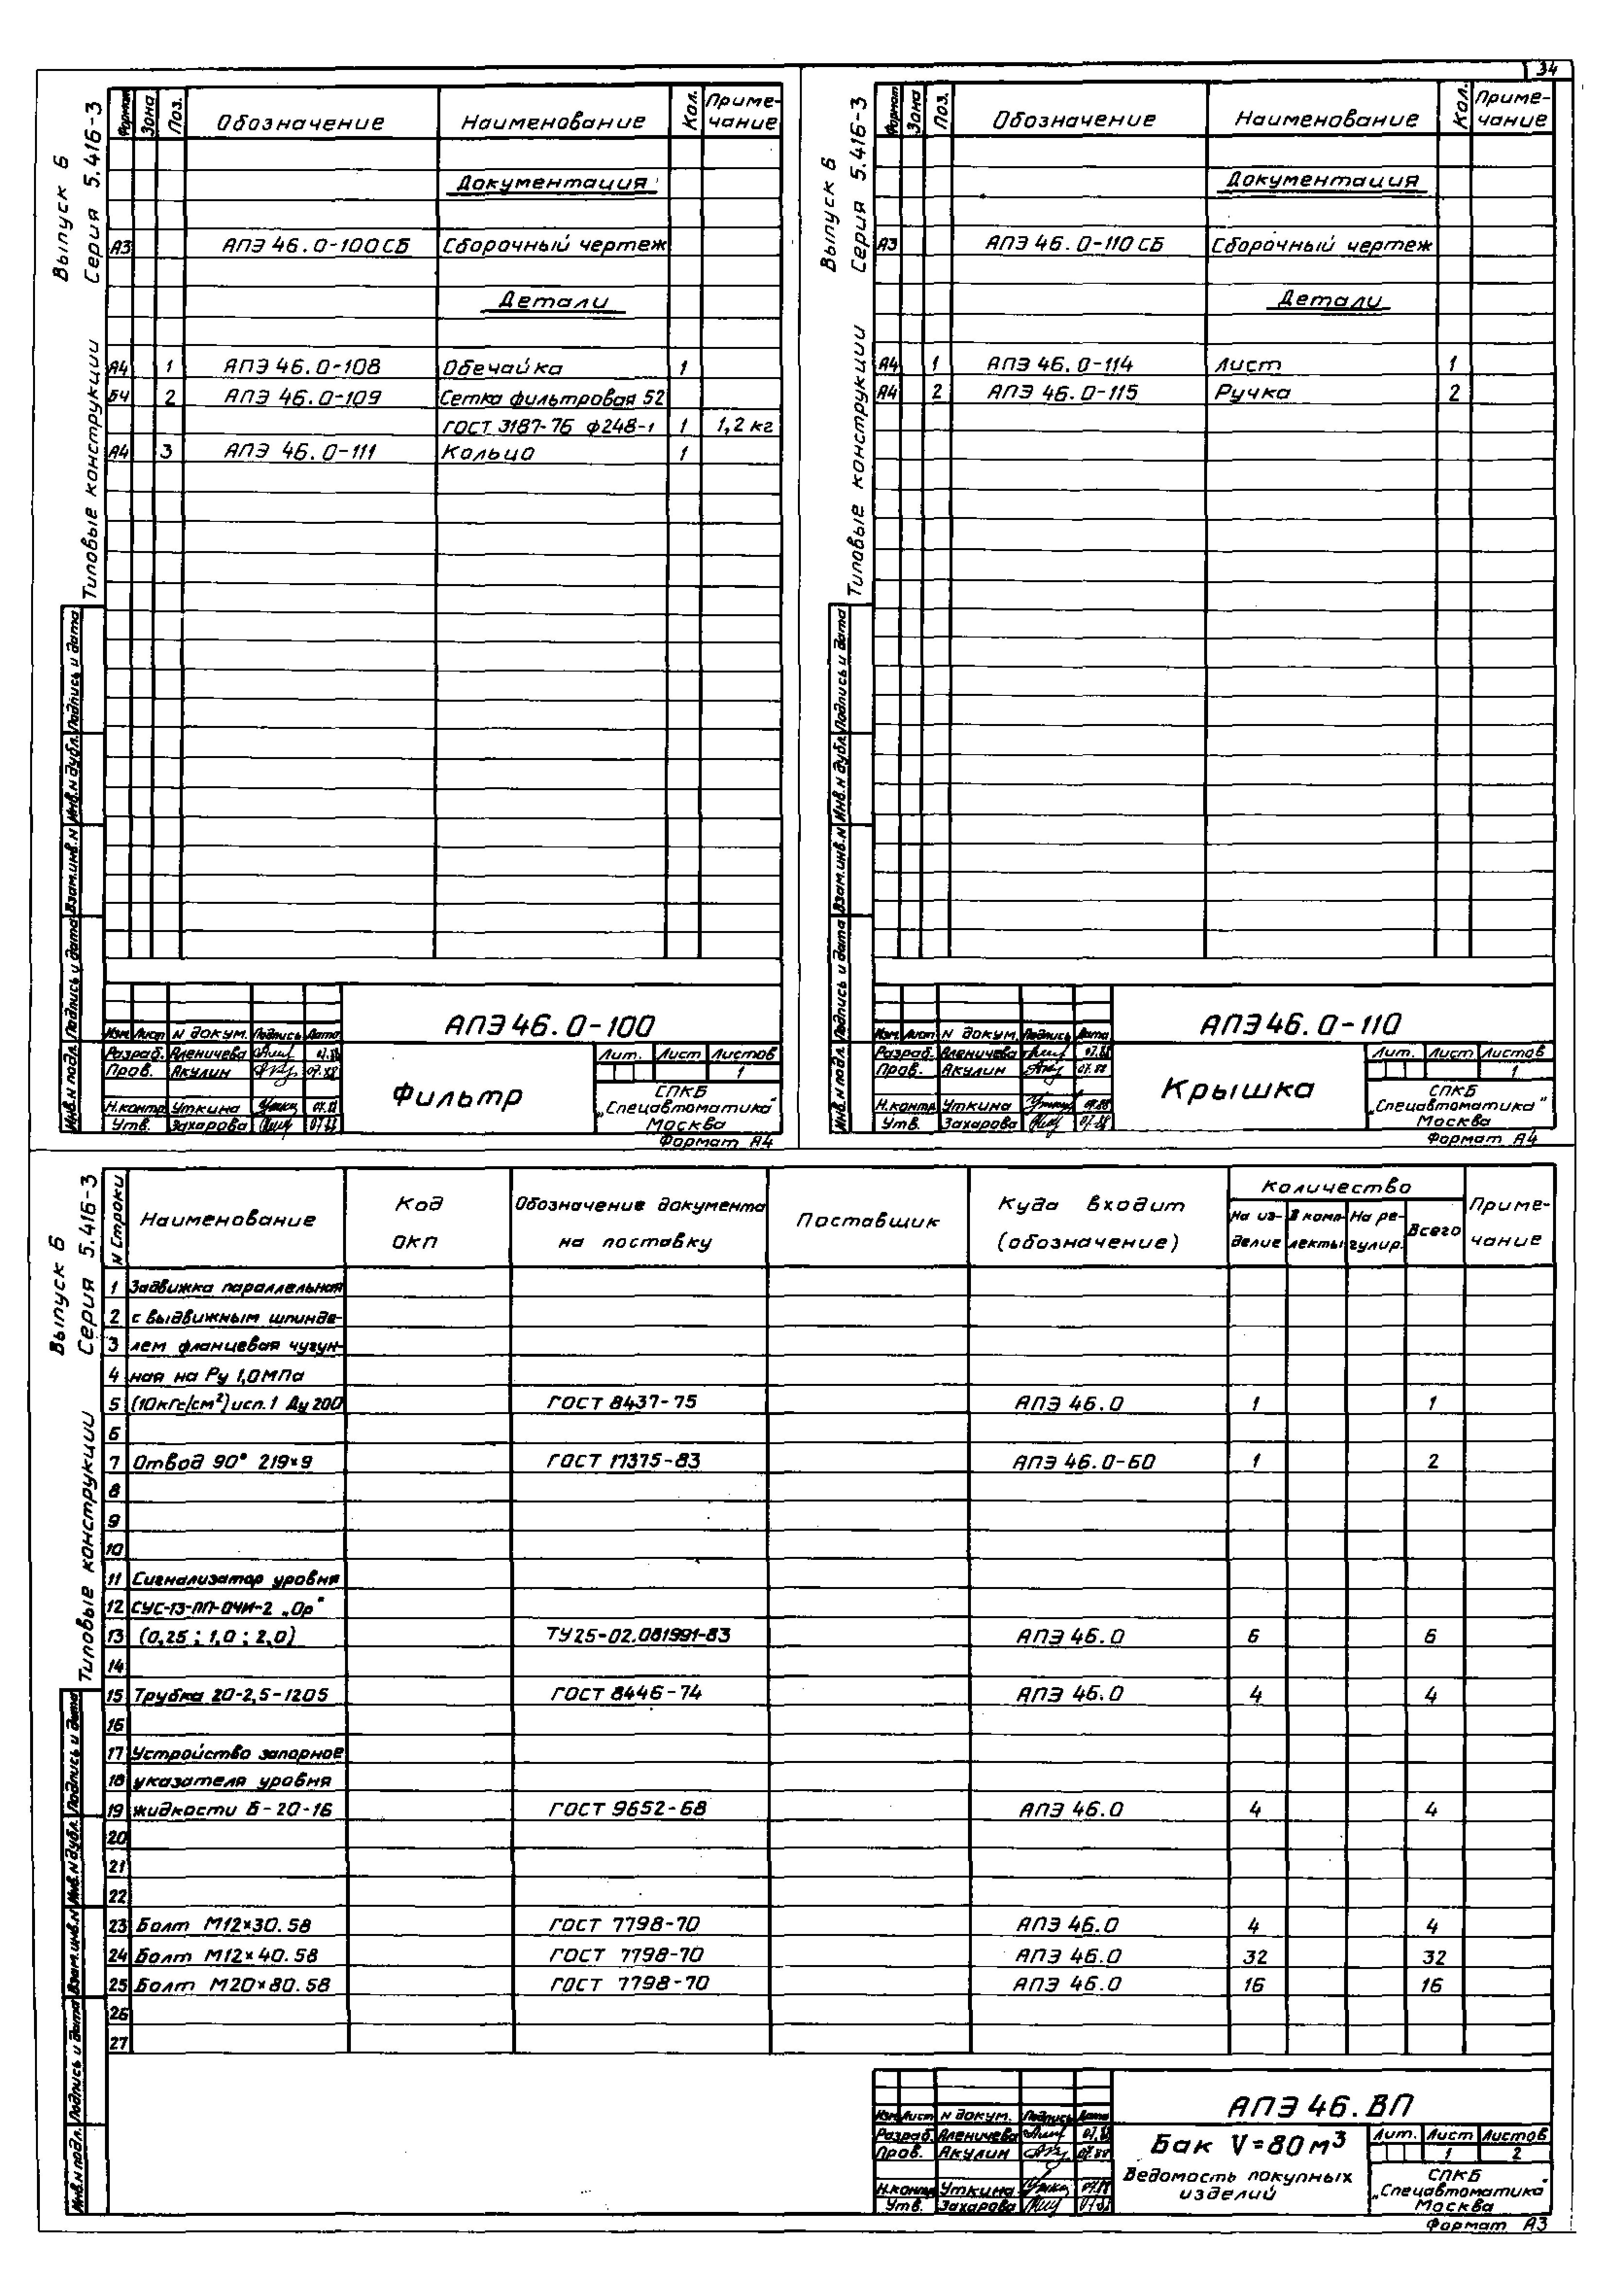 34
Выпуск 6
Серия 5.416-3
Типовые конструкции
Формат Зона Поз. Обозначение Наименование Кол. Приме-
чание
Документация
А3 АПЭ 46.0-100СБ Сборочный чертеж
Детали
А4 1 АПЭ 46.0-108 Обечайка 1
БЧ 2 АПЭ 46.0-109 Сетка фильтровая 52
ГОСТ 3187-76 ф248-1 1 1,2 кг
А4 3 АПЭ 46.0-111 Кольцо 1
Подпись и дата
Инв.N дубл.
Взам.инв.N
Подпись и дата
Инв.N подл.
Изм. Лист N докум. Подпись Дата
АПЭ 46.0-100
Разраб. Аленичева 07.88
Пров. Акулин 07.88
Н.контр. Уткина 07.88
Утв. Захарова 07.88
Фильтр
Лит. Лист Листов
1
СПКБ
„Спецавтоматика"
Москва
Формат А4
Выпуск 6
Серия 5.416-3
Типовые конструкции
Формат Зона Поз. Обозначение Наименование Кол. Приме-
чание
Документация
А3 АПЭ 46.0-110СБ Сборочный чертеж
Детали
А4 1 АПЭ 46.0-114 Лист 1
А4 2 АПЭ 46.0-115 Ручка 2
Подпись и дата
Инв.N дубл.
Взам.инв.N
Подпись и дата
Инв.N подл.
Изм. Лист N докум. Подпись Дата
АПЭ 46.0-110
Разраб. Аленичева 07.88
Пров. Акулин 07.88
Н.контр. Уткина 07.88
Утв. Захарова 07.88
Крышка
Лит. Лист Листов
1
СПКБ
„Спецавтоматика"
Москва
Формат А4
Выпуск 6
Серия 5.416-3
Типовые конструкции
N Строки Наименование Код
ОКП Обозначение документа
на поставку Поставщик Куда входит
(обозначение) Количество
На из-
делие В комп-
лекты На ре-
гулир. Всего Приме-
чание
1 Задвижка параллельная
2 с выдвижным шпинде-
3 лем фланцевая чугун-
4 ная на Ру 1,0МПа
5 (10кгс/см²) исп.1 Ду 200 ГОСТ 8437-75 АПЭ 46.0 1 1
6
7 Отвод 90° 219×9 ГОСТ 17375-83 АПЭ 46.0-60 1 2
8
9
10
11 Сигнализатор уровня
12 СУС-13-ПП-ОЧИ-2 „Ор"
13 (0,25; 1,0; 2,0) ТУ25-02.081991-83 АПЭ 46.0 6 6
14
15 Трубка 20-2,5-1205 ГОСТ 8446-74 АПЭ 46.0 4 4
16
17 Устройство запорное
18 указателя уровня
19 жидкости Б-20-16 ГОСТ 9652-68 АПЭ 46.0 4 4
20
21
22
23 Болт М12×30.58 ГОСТ 7798-70 АПЭ 46.0 4 4
24 Болт М12×40.58 ГОСТ 7798-70 АПЭ 46.0 32 32
25 Болт М20×80.58 ГОСТ 7798-70 АПЭ 46.0 16 16
26
27
Подпись и дата
Инв.N дубл.
Взам.инв.N
Подпись и дата
Инв.N подл.
Изм. Лист N докум. Подпись Дата
АПЭ 46.ВП
Разраб. Аленичева 07.88
Пров. Акулин 07.88
Н.контр. Уткина 07.88
Утв. Захарова 07.88
Бак V=80м³
Ведомость покупных
изделий
Лит. Лист Листов
1 2
СПКБ
„Спецавтоматика"
Москва
Формат А3